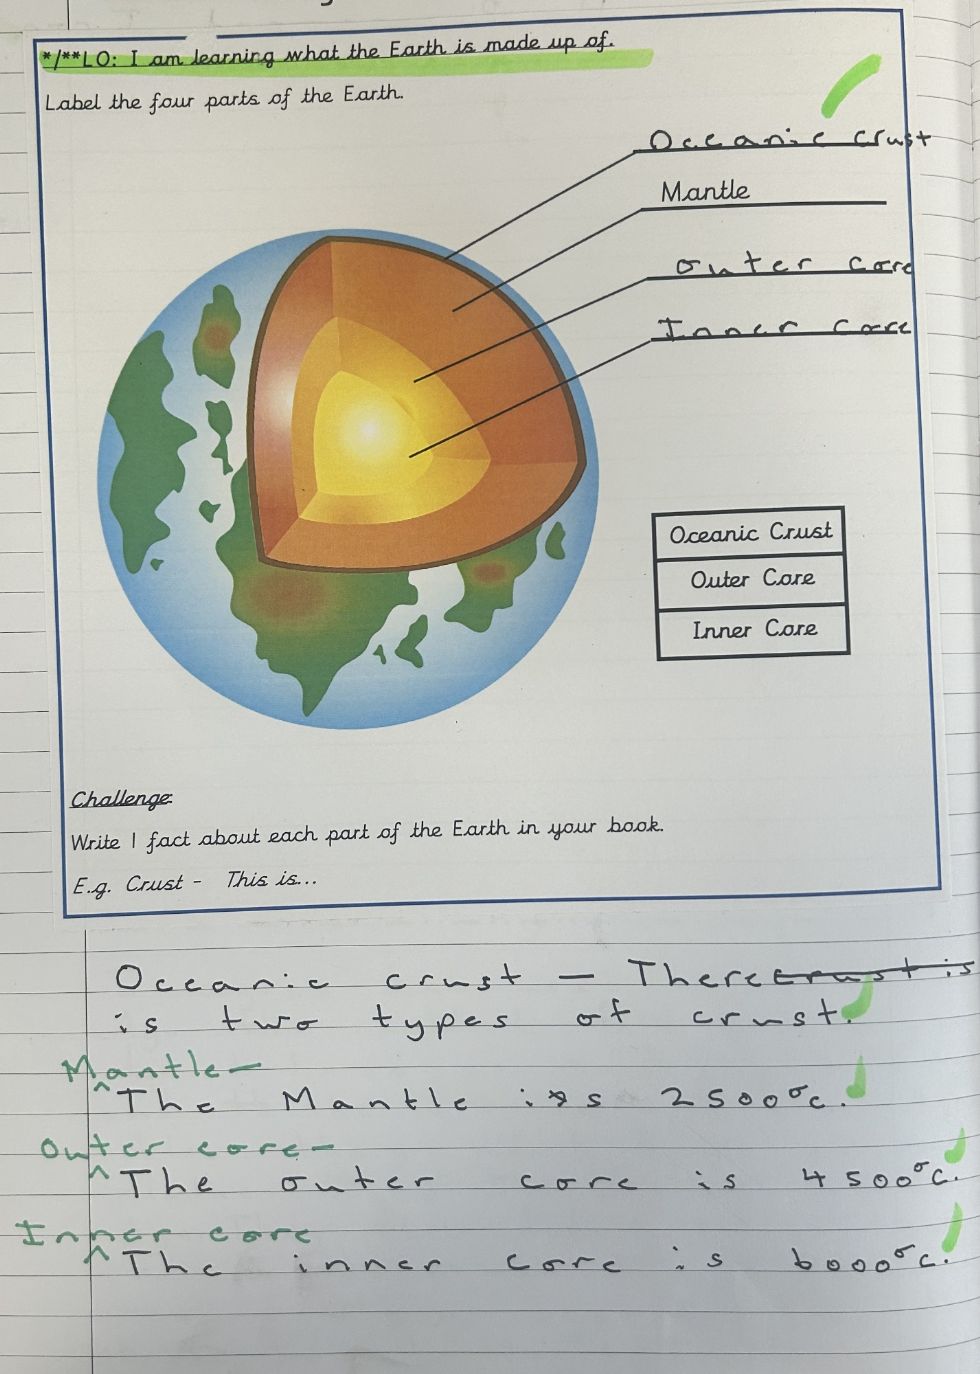 */**LO: I am learning what the Earth is made up of.
Label the four parts of the Earth.
Oceanic crust
Mantle
outer core
Inner core
Oceanic Crust
Outer Core
Inner Core
Challenge
Write 1 fact about each part of the Earth in your book.
E.g. Crust - This is...
Oceanic crust — There crust is
is two types of crust.
Mantle—
^The Mantle is 2500°c.
Outer core—
^The outer core is 4500°c.
Inner core
^The inner core is 6000°c.